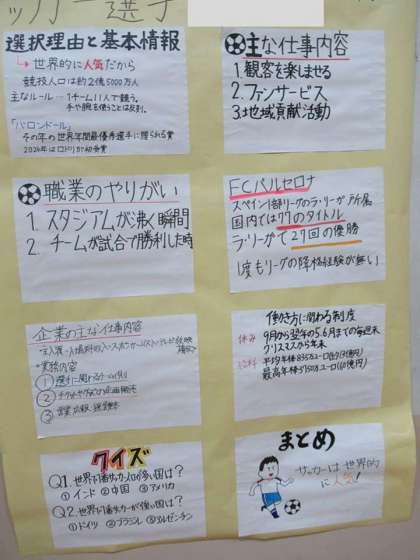 ッカー選手
選択理由と基本情報
→世界的に人気だから
競技人口は約2億5000万人
主なルール…1チーム11人で競う。
手や腕を使うことは反則。
「バロンドール」
その年の世界年間最優秀選手に贈られる賞
2024年はロドリが初受賞
主な仕事内容
1.観客を楽しませる
2.ファンサービス
3.地域貢献活動
職業のやりがい
1. スタジアムが沸く瞬間
2. チームが試合で勝利した時
FCバルセロナ
スペイン1部リーグのラ・リーガ所属
国内では77のタイトル
ラ・リーガで27回の優勝
1度もリーグの降格経験が無い
企業の主な仕事内容
・業務内容
①選手に関わるチームの
②チケットやグッズの企画販売
③営業、広報、
働き方に関わる制度
休み
9月から翌年の5.6月までの毎週末
クリスマスから年末
平均年俸
最高年俸
クイズ
Q1.世界で1番サッカー人口が多い国は？
①インド ②中国 ③アメリカ
Q2.世界で1番サッカーが強い国は？
①ドイツ ②ブラジル ③アルゼンチン
まとめ
サッカーは世界的
に人気！